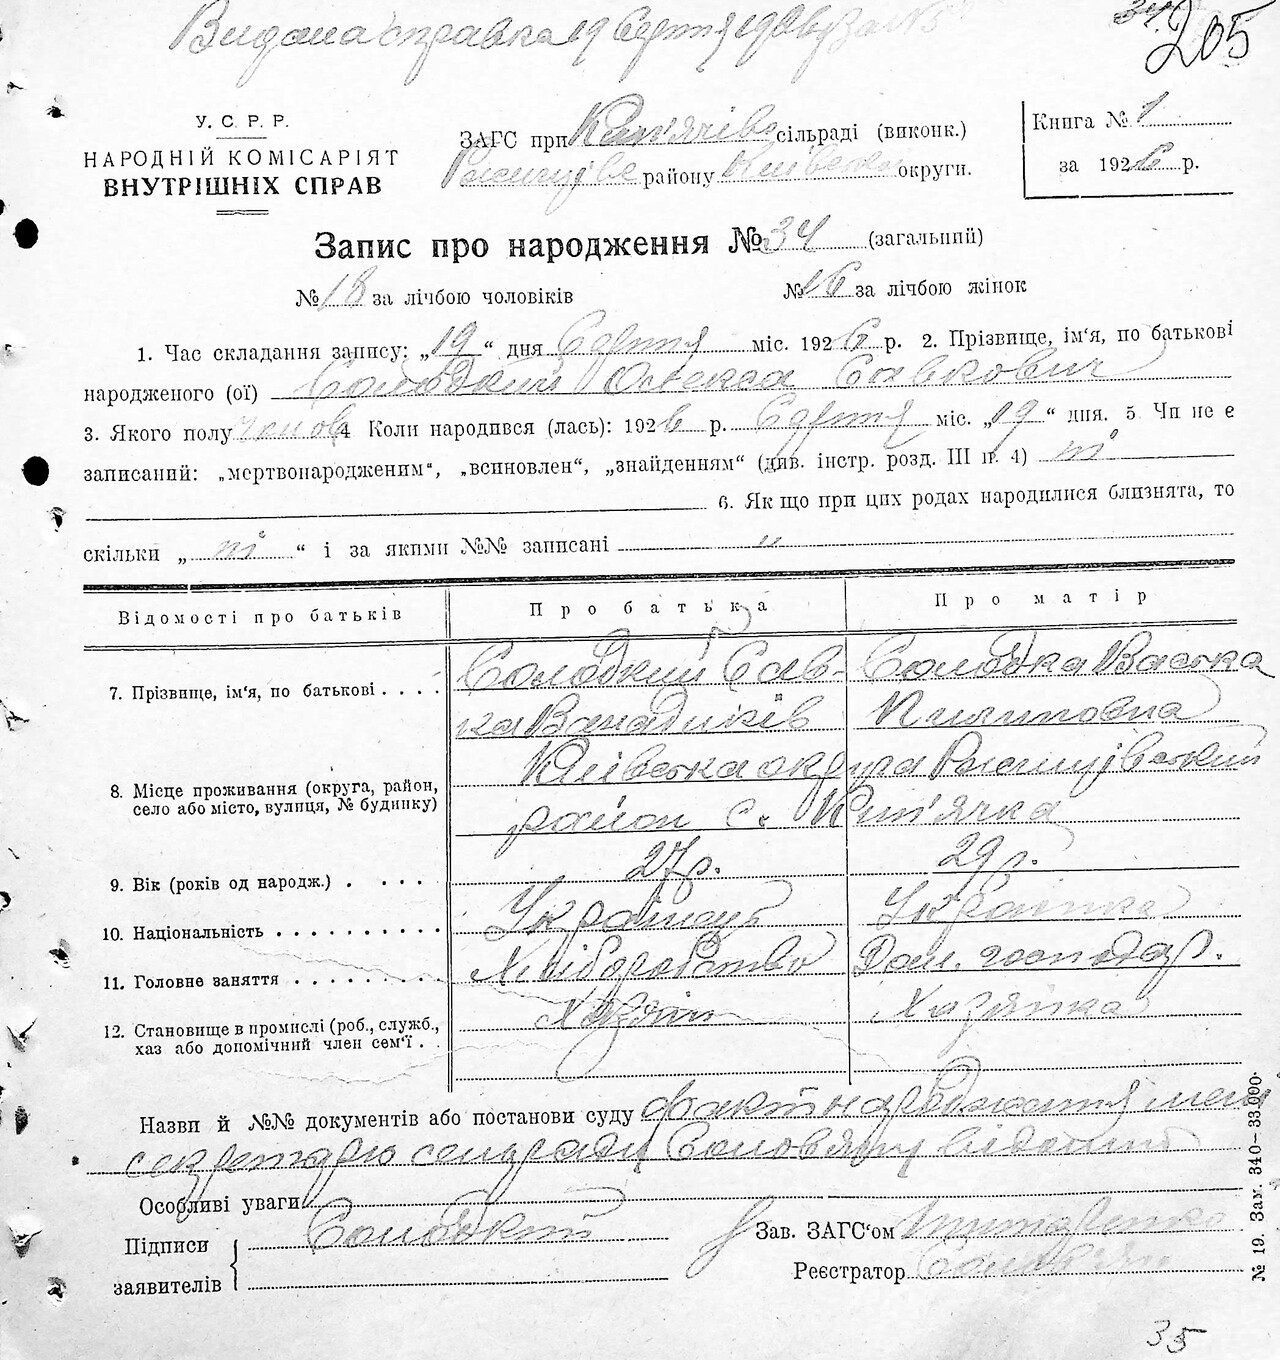 Видана справка 19 серпня
205
У. С. Р. Р.
НАРОДНІЙ КОМІСАРІЯТ
ВНУТРІШНІХ СПРАВ
ЗАГС при сільраді (виконк.)
району Київської округи.
Книга № 1
за 1926 р.
Запис про народження № 34 (загальний)
№ 18 за лічбою чоловіків
№ 16 за лічбою жінок
1. Час складання запису: „19“ дня Серпня міс. 1926 р. 2. Прізвище, ім'я, по батькові
народженого (ої) Солодкий Олекса Савкович
3. Якого полу чолов 4 Коли народився (лась): 1926 р. Серпня міс. „19“ дня. 5 Чи не є
записаний: „мертвонародженим“, „всиновлен“, „знайденням“ (див. інстр. розд. III п. 4) ні
6. Як що при цих родах народилися близнята, то
скільки „ ні “ і за якими №№ записані „
Відомості про батьків
Про батька
Про матір
7. Прізвище, ім'я, по батькові . . . .
Солодкий Сав-
ка
Солодка Васька
Пилиповна
8. Місце проживання (округа, район,
село або місто, вулиця, № будинку)
Київська округа Ржищівський
район с. Кип'ячка
9. Вік (років од народж.) . . . . .
27 р.
29 р.
10. Національність . . . . . . . . . .
Українець
Українка
11. Головне заняття . . . . . . . . .
Хліборобство
Дом. господар.
12. Становище в промислі (роб., служб.,
хаз або допомічний член сем'ї . . .
Хазяїн
Хазяйка
Назви й №№ документів або постанови суду факт народження мені
секретарю сельради Соловяну відомий
Особливі уваги
Підписи
заявителів
Солодкий
Зав. ЗАГС'ом
Реєстратор Соловян
№ 19. Зам. 340—33.000.
35